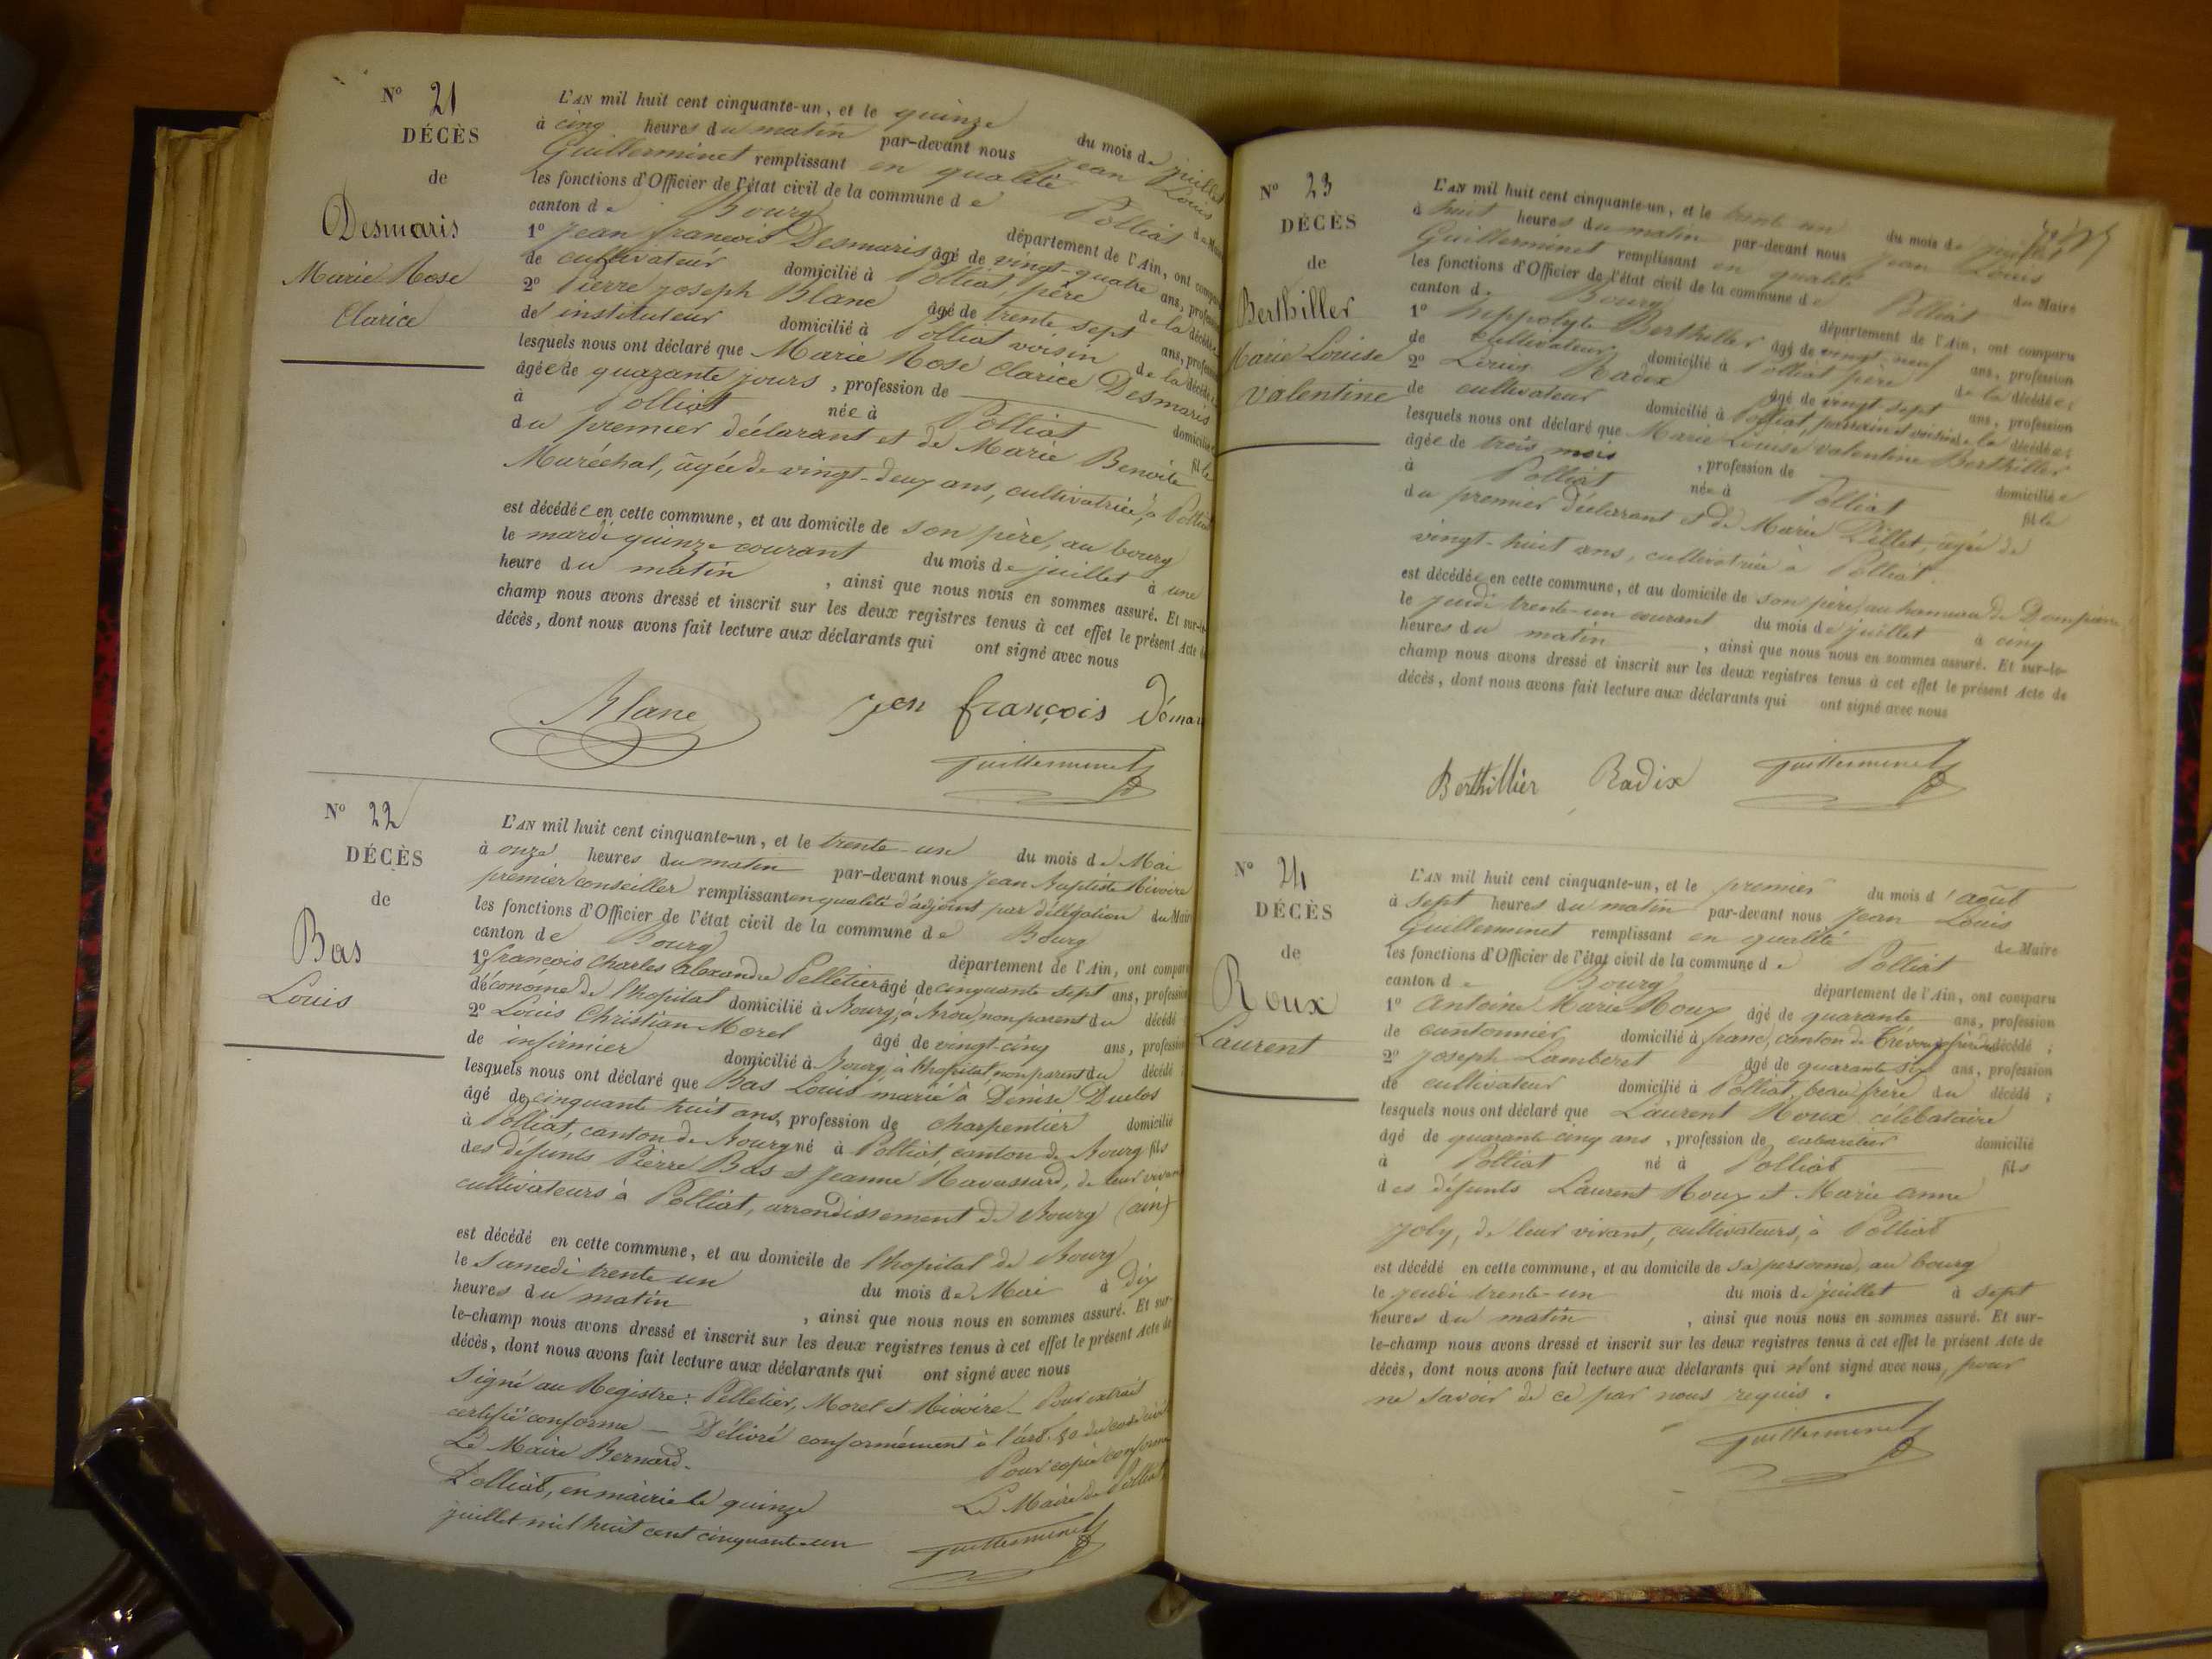 N° 21
DÉCÈS
de
Desmaris
Marie Rose
Clarice
L'AN mil huit cent cinquante-un, et le quinze du mois de juillet
à cinq heures du matin par-devant nous Jean Louis
Guillerminet remplissant en qualité de Maire
les fonctions d'Officier de l'état civil de la commune de Polliat
canton de Bourg département de l'Ain, ont comparu
1° Jean françois Desmaris âgé de vingt-quatre ans, profession
de cultivateur domicilié à Polliat, père de la décédée
2° Pierre joseph Blanc âgé de trente sept ans, profession
de instituteur domicilié à Polliat voisin de la décédée
lesquels nous ont déclaré que Marie Rose Clarice Desmaris
âgée de quarante jours, profession de domiciliée
à Polliat née à Polliat fille
du premier déclarant et de Marie Benoite
Maréchal, âgée de vingt-deux ans, cultivatrice, à Polliat
est décédée en cette commune, et au domicile de son père, au bourg
le mardi quinze courant du mois de juillet à une
heure du matin, ainsi que nous nous en sommes assuré. Et sur-le-
champ nous avons dressé et inscrit sur les deux registres tenus à cet effet le présent Acte de
décès, dont nous avons fait lecture aux déclarants qui ont signé avec nous
Blanc jen françois Démar
Guillerminet
N° 22
DÉCÈS
de
Bas
Louis
L'AN mil huit cent cinquante-un, et le trente-un du mois de Mai
à onze heures du matin par-devant nous Jean Baptiste Rivoire
premier conseiller remplissant en qualité d'adjoint par délégation du Maire
les fonctions d'Officier de l'état civil de la commune de Bourg
canton de Bourg département de l'Ain, ont comparu
1° françois Charles alexandre Pelletier âgé de cinquante sept ans, profession
d'économe de l'hopital domicilié à Bourg, à Brou, non parent du décédé
2° Louis Christian Morel âgé de vingt-cinq ans, profession
de infirmier domicilié à Bourg, à l'hopital, non parent du décédé
lesquels nous ont déclaré que Bas Louis marié à Dénise Duclos
âgé de cinquante huit ans, profession de charpentier domicilié
à Polliat, canton de Bourg né à Polliat, canton de Bourg fils
des défunts Pierre Bas et Jeanne Ravassard, de leur vivant
cultivateurs à Polliat, arrondissement de Bourg (ain)
est décédé en cette commune, et au domicile de l'hopital de Bourg
le samedi trente un du mois de Mai à dix
heures du matin, ainsi que nous nous en sommes assuré. Et sur-
le-champ nous avons dressé et inscrit sur les deux registres tenus à cet effet le présent Acte de
décès, dont nous avons fait lecture aux déclarants qui ont signé avec nous
Signé au Registre: Pelletier, Morel et Rivoire - Pour extrait
certifié conforme - Délivré conformément à l'art. 80 du code civil
Le Maire Bernard. Pour copie conforme
Polliat, en mairie le quinze Le Maire de Polliat
juillet mil huit cent cinquante-un Guillerminet
N° 23
DÉCÈS
de
Berthiller
Marie Louise
valentine
L'AN mil huit cent cinquante-un, et le trente un du mois de juillet
à huit heures du matin par-devant nous Jean Louis
Guillerminet remplissant en qualité de Maire
les fonctions d'Officier de l'état civil de la commune de Polliat
canton de Bourg département de l'Ain, ont comparu
1° hippolyte Berthiller âgé de vingt-neuf ans, profession
de cultivateur domicilié à Polliat père de la décédée;
2° Louis Radix âgé de vingt sept ans, profession
de cultivateur domicilié à Polliat, parrain et voisin de la décédée;
lesquels nous ont déclaré que Marie Louise valentine Berthiller
âgée de trois mois, profession de domiciliée
à Polliat née à Polliat fille
du premier déclarant et de Marie Pillet, âgée de
vingt-huit ans, cultivatrice à Polliat.
est décédée en cette commune, et au domicile de son père, au hameau de Dompierre
le jeudi trente-un courant du mois de juillet à cinq
heures du matin, ainsi que nous nous en sommes assuré. Et sur-le-
champ nous avons dressé et inscrit sur les deux registres tenus à cet effet le présent Acte de
décès, dont nous avons fait lecture aux déclarants qui ont signé avec nous
Berthillier Radix Guillerminet
N° 24
DÉCÈS
de
Roux
Laurent
L'AN mil huit cent cinquante-un, et le premier du mois d'août
à sept heures du matin par-devant nous Jean Louis
Guillerminet remplissant en qualité de Maire
les fonctions d'Officier de l'état civil de la commune de Polliat
canton de Bourg département de l'Ain, ont comparu
1° Antoine Marie Roux âgé de quarante ans, profession
de cantonnier domicilié à franc, canton de Trévoux, frère du décédé;
2° Joseph Lamberet âgé de quarante six ans, profession
de cultivateur domicilié à Polliat, beau frère du décédé;
lesquels nous ont déclaré que Laurent Roux célibataire
âgé de quarante cinq ans, profession de cabaretier domicilié
à Polliat né à Polliat fils
des défunts Laurent Roux et Marie anne
Joly, de leur vivant, cultivateurs, à Polliat
est décédé en cette commune, et au domicile de sa personne, au bourg
le jeudi trente-un du mois de juillet à sept
heures du matin, ainsi que nous nous en sommes assuré. Et sur-
le-champ nous avons dressé et inscrit sur les deux registres tenus à cet effet le présent Acte de
décès, dont nous avons fait lecture aux déclarants qui n'ont signé avec nous, pour
ne savoir de ce par nous requis.
Guillerminet